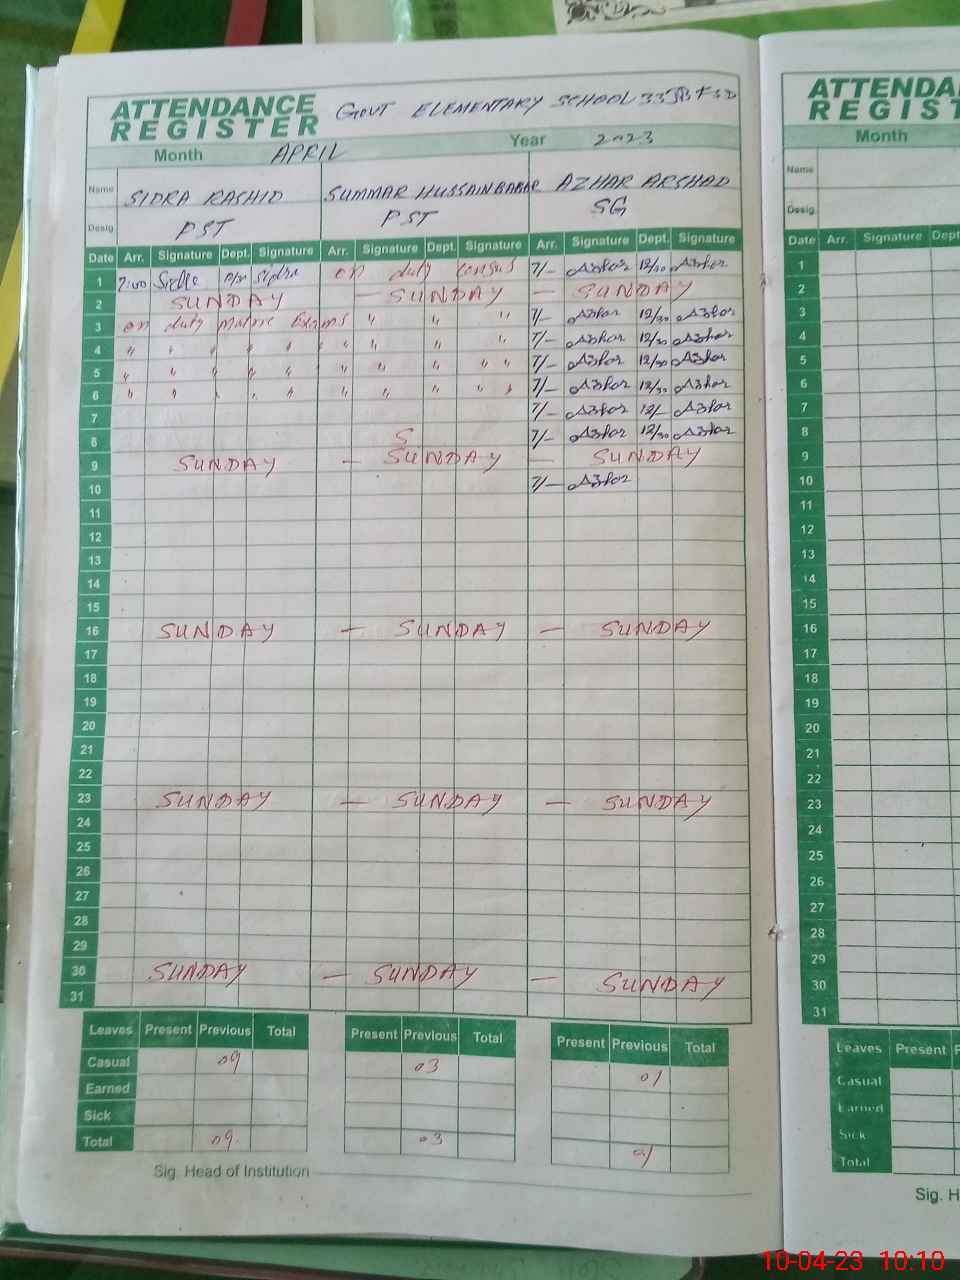 ATTENDANCE REGISTER GOVT ELEMENTARY SCHOOL 33JB FSD
Month APRIL Year 2023
Name SIDRA RASHID SUMMAR HUSSAIN BABAR AZHAR ARSHAD
Desig. PST PST SG
Date Arr. Signature Dept. Signature Arr. Signature Dept. Signature Arr. Signature Dept. Signature
1 7:00 Sidra Sidra on duty census 7/- Azhar 12/30 Azhar
2 SUNDAY - SUNDAY - SUNDAY
3 on duty Matric Exams " " " 7/- Azhar 12/30 Azhar
4 " " " " " " " " " 7/- Azhar 12/30 Azhar
5 " " " " " " " " " " 7/- Azhar 12/30 Azhar
6 " " " " " " " " " " 7/- Azhar 12/30 Azhar
7 7/- Azhar 12/- Azhar
8 S 7/- Azhar 12/30 Azhar
9 SUNDAY - SUNDAY - SUNDAY
10 7/- Azhar
11
12
13
14
15
16 SUNDAY - SUNDAY - SUNDAY
17
18
19
20
21
22
23 SUNDAY - SUNDAY - SUNDAY
24
25
26
27
28
29
30 SUNDAY - SUNDAY - SUNDAY
31
Leaves Present Previous Total Present Previous Total Present Previous Total
Casual 09 03 01
Earned
Sick
Total 09 03 01
Sig. Head of Institution
ATTENDAN
REGIST
Month
Name
Desig.
Date Arr. Signature Dept
1
2
3
4
5
6
7
8
9
10
11
12
13
14
15
16
17
18
19
20
21
22
23
24
25
26
27
28
29
30
31
Leaves Present P
Casual
Earned
Sick
Total
Sig. H
10-04-23 10:10